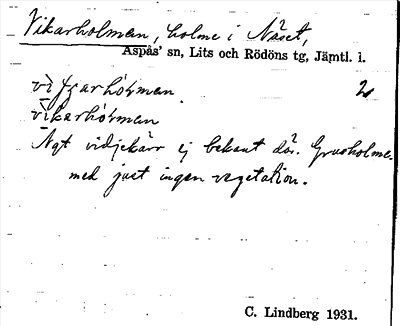 Vikarholman, holme i Näset,
Aspås' sn, Lits och Rödöns tg, Jämtl. l.
2
vikarhóḷman
Ngt vidjekärr ej bekant där. Grusholme
med just ingen vegetation.
C. Lindberg 1931.